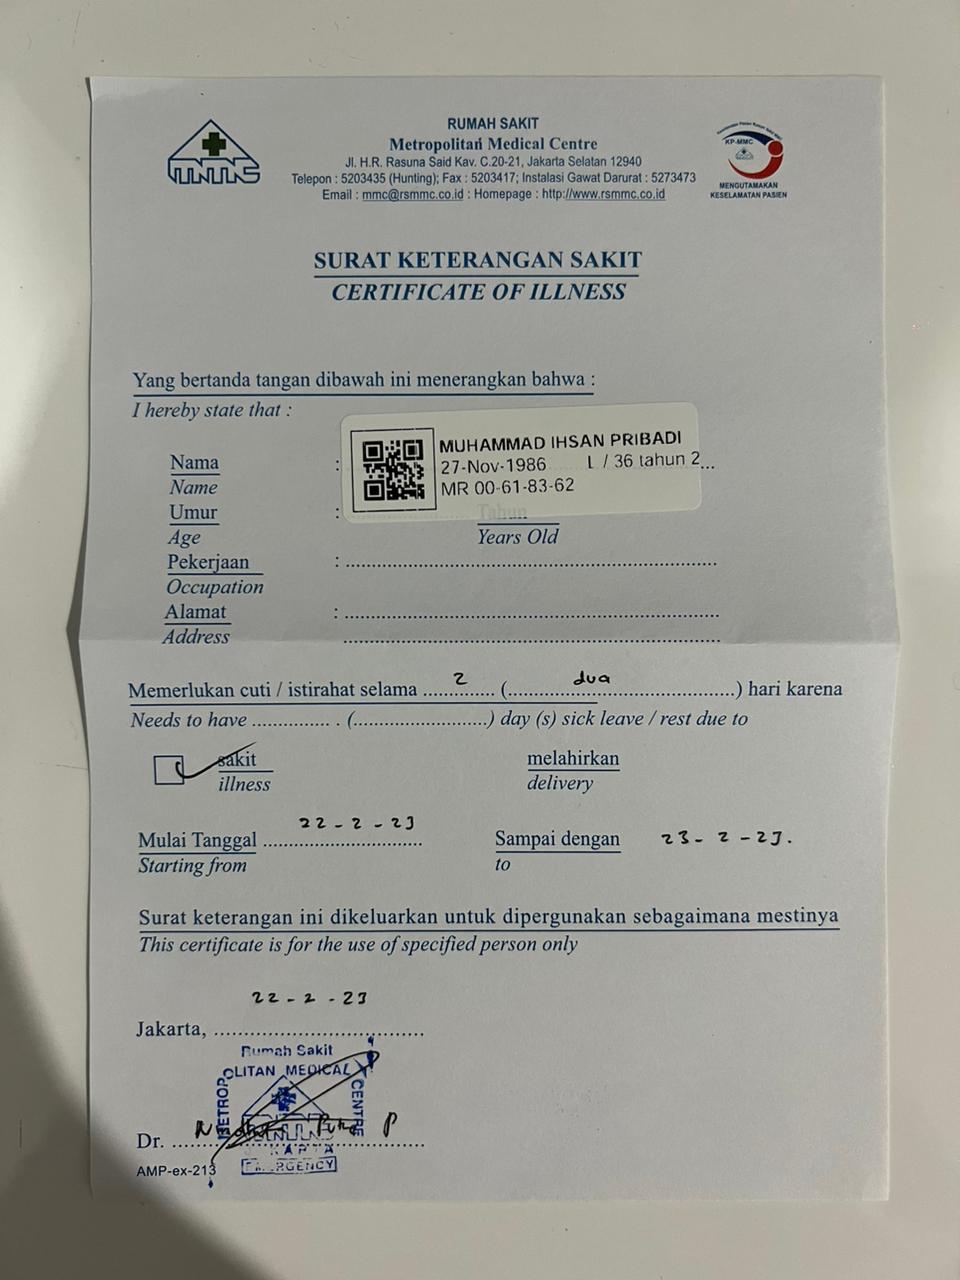 RUMAH SAKIT
Metropolitan Medical Centre
Jl. H.R. Rasuna Said Kav. C.20-21, Jakarta Selatan 12940
Telepon : 5203435 (Hunting); Fax : 5203417; Instalasi Gawat Darurat : 5273473
Email : mmc@rsmmc.co.id : Homepage : http://www.rsmmc.co.id
MMC
KP-MMC
MENGUTAMAKAN
KESELAMATAN PASIEN
SURAT KETERANGAN SAKIT
CERTIFICATE OF ILLNESS
Yang bertanda tangan dibawah ini menerangkan bahwa :
I hereby state that :
MUHAMMAD IHSAN PRIBADI
27-Nov-1986 L / 36 tahun 2...
MR 00-61-83-62
Nama :
Name
Umur : Tahun
Age Years Old
Pekerjaan : ..............................................................
Occupation
Alamat : ..............................................................
Address ..............................................................
Memerlukan cuti / istirahat selama .....2....... (...........dua.......................) hari karena
Needs to have .............. . (.......................) day (s) sick leave / rest due to
sakit melahirkan
illness delivery
Mulai Tanggal 22-2-23 Sampai dengan 23-2-23.
Starting from to
Surat keterangan ini dikeluarkan untuk dipergunakan sebagaimana mestinya
This certificate is for the use of specified person only
Jakarta, 22-2-23
Rumah Sakit
METROPOLITAN MEDICAL CENTRE
Dr. ..................................
AMP-ex-213